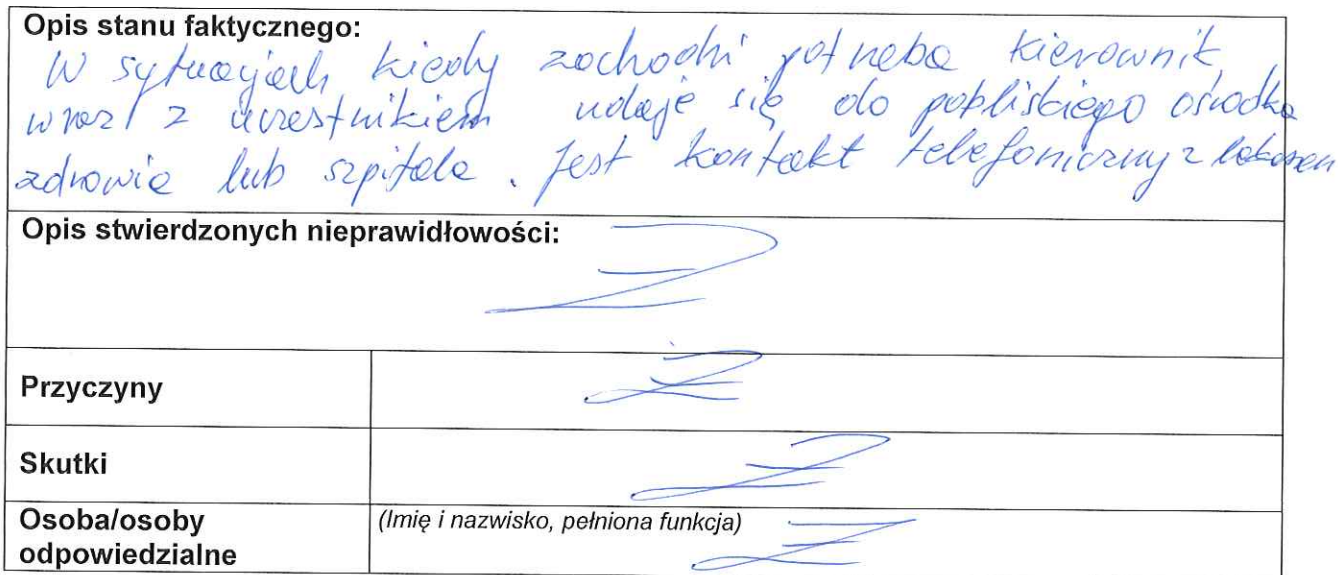 Opis stanu faktycznego:
W sytuacjach kiedy zachodzi potrzeba kierownik
wraz z uczestnikiem udaje się do pobliskiego ośrodka
zdrowia lub szpitala. Jest kontakt telefoniczny z lekarzem
Opis stwierdzonych nieprawidłowości:
Przyczyny
Skutki
Osoba/osoby
odpowiedzialne
(Imię i nazwisko, pełniona funkcja)